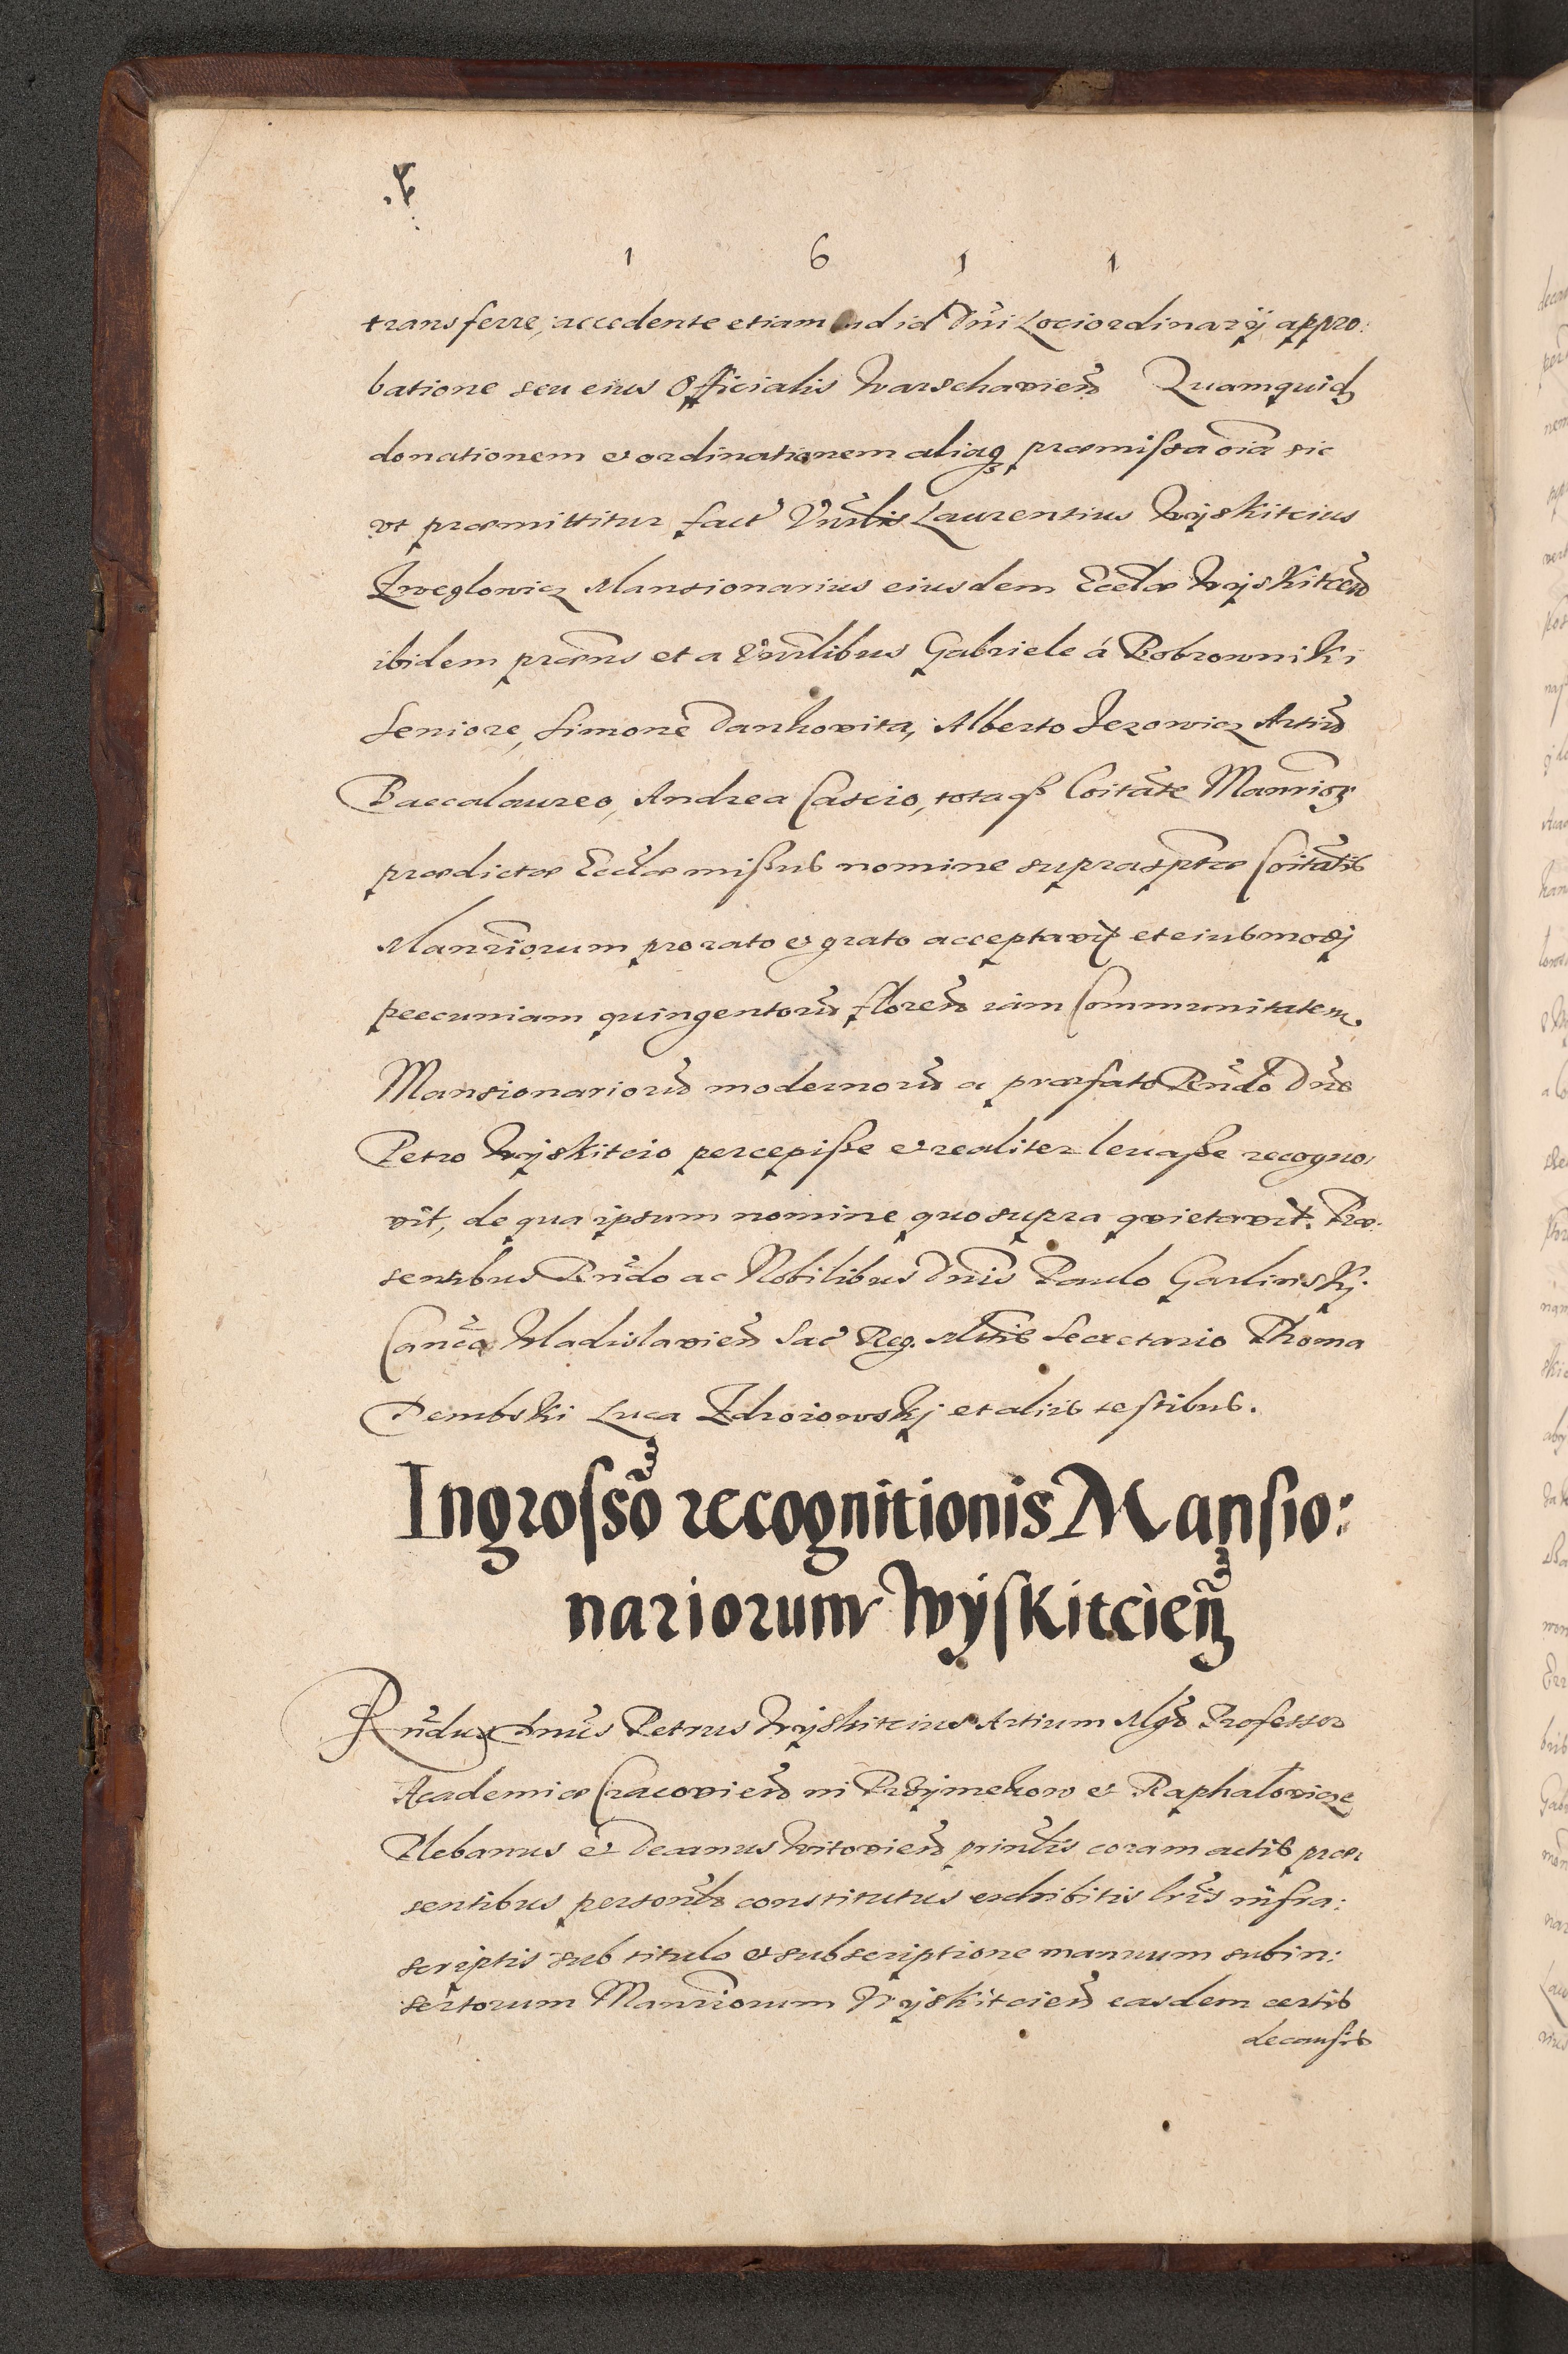 1 6 1 1
transferre, accedente etiam ad id Dni Lociordinarij appro:
batione seu eius Officialis Warschavien Quamquidq
donationem et ordinationem aliaq præmissa oia sic
vt præmittitur fact Vnrlis Laurentius Wyskitcius
Zweglowicz Mansionarius eiusdem Ecclæ Wyskitcen
ibidem præns et a Vnrlibus Gabriele á Bobrowniki
Seniore, Simone Dankovita, Alberto Jezowicz Artiu
Baccalaureo, Andrea Cascio, totaqß Coitate MansrioR
prædictæ Ecclæ missus nomine suprasptæ Coitatis
Mansriorum prorato et grato acceptavit et eiusmodj
peecuniam quingentoru floren iam Communitatem
Mansionarioru modernoru a præfato Rndo Dno
Petro Wyskitcio percepisse et realiter levasse recogno:
vit, de qua ipsum nomine quo supra qvietavit. Præ:
sentibus Rndo ac Nobilibus Dnis Paulo Garlinskj
Canco Wladislavien Sac Reg. Mttis Secretario Thoma
Dembski Luca Zdroiowskj et aliis testibus.
Ingrosso recognitionis Mansio:
nariorum Wyskitcien
Rndus Dnus Petrus Wyskitcius Artium Mgr Professor
Academiæ Cracovien in Przymekow et Raphalovicze
Plebanus et Decanus Witovien prinlis coram actis præ:
sentibus personlr constitutus exhibitis lris infra:
scriptis sub titulo et subscriptione manuum subin:
sertorum Mansriorum Wyskitcien easdem certis
decausis